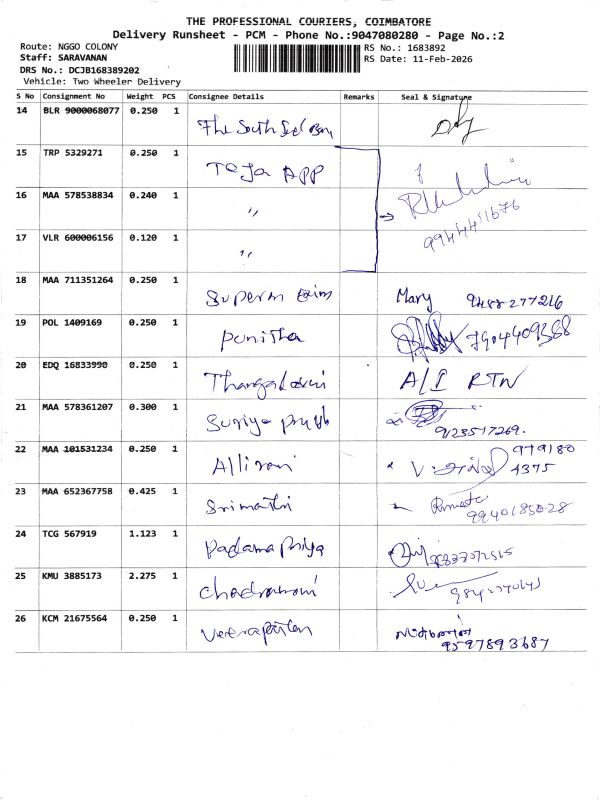 THE PROFESSIONAL COURIERS, COIMBATORE
Delivery Runsheet - PCM - Phone No.:9047080280 - Page No.:2
Route: NGGO COLONY
Staff: SARAVANAN
DRS No.: DCJB168389202
Vehicle: Two Wheeler Delivery
RS No.: 1683892
RS Date: 11-Feb-2026
S No Consignment No Weight PCS Consignee Details Remarks Seal & Signature
14 BLR 9000068077 0.250 1 The South
15 TRP 5329271 0.250 1 Teja APP
16 MAA 578538834 0.240 1 "
17 VLR 600006156 0.120 1 "
18 MAA 711351264 0.250 1 Superm Mary 9488277216
19 POL 1409169 0.250 1 Punitha 7904409388
20 EDQ 16833990 0.250 1 A/I RTN
21 MAA 578361207 0.300 1 Suriya 9123517269.
22 MAA 101531234 0.250 1 Allirani 979180
4375
23 MAA 652367758 0.425 1 Srimathi
24 TCG 567919 1.123 1 Padama Priya
25 KMU 3885173 2.275 1
26 KCM 21675564 0.250 1 9597893687